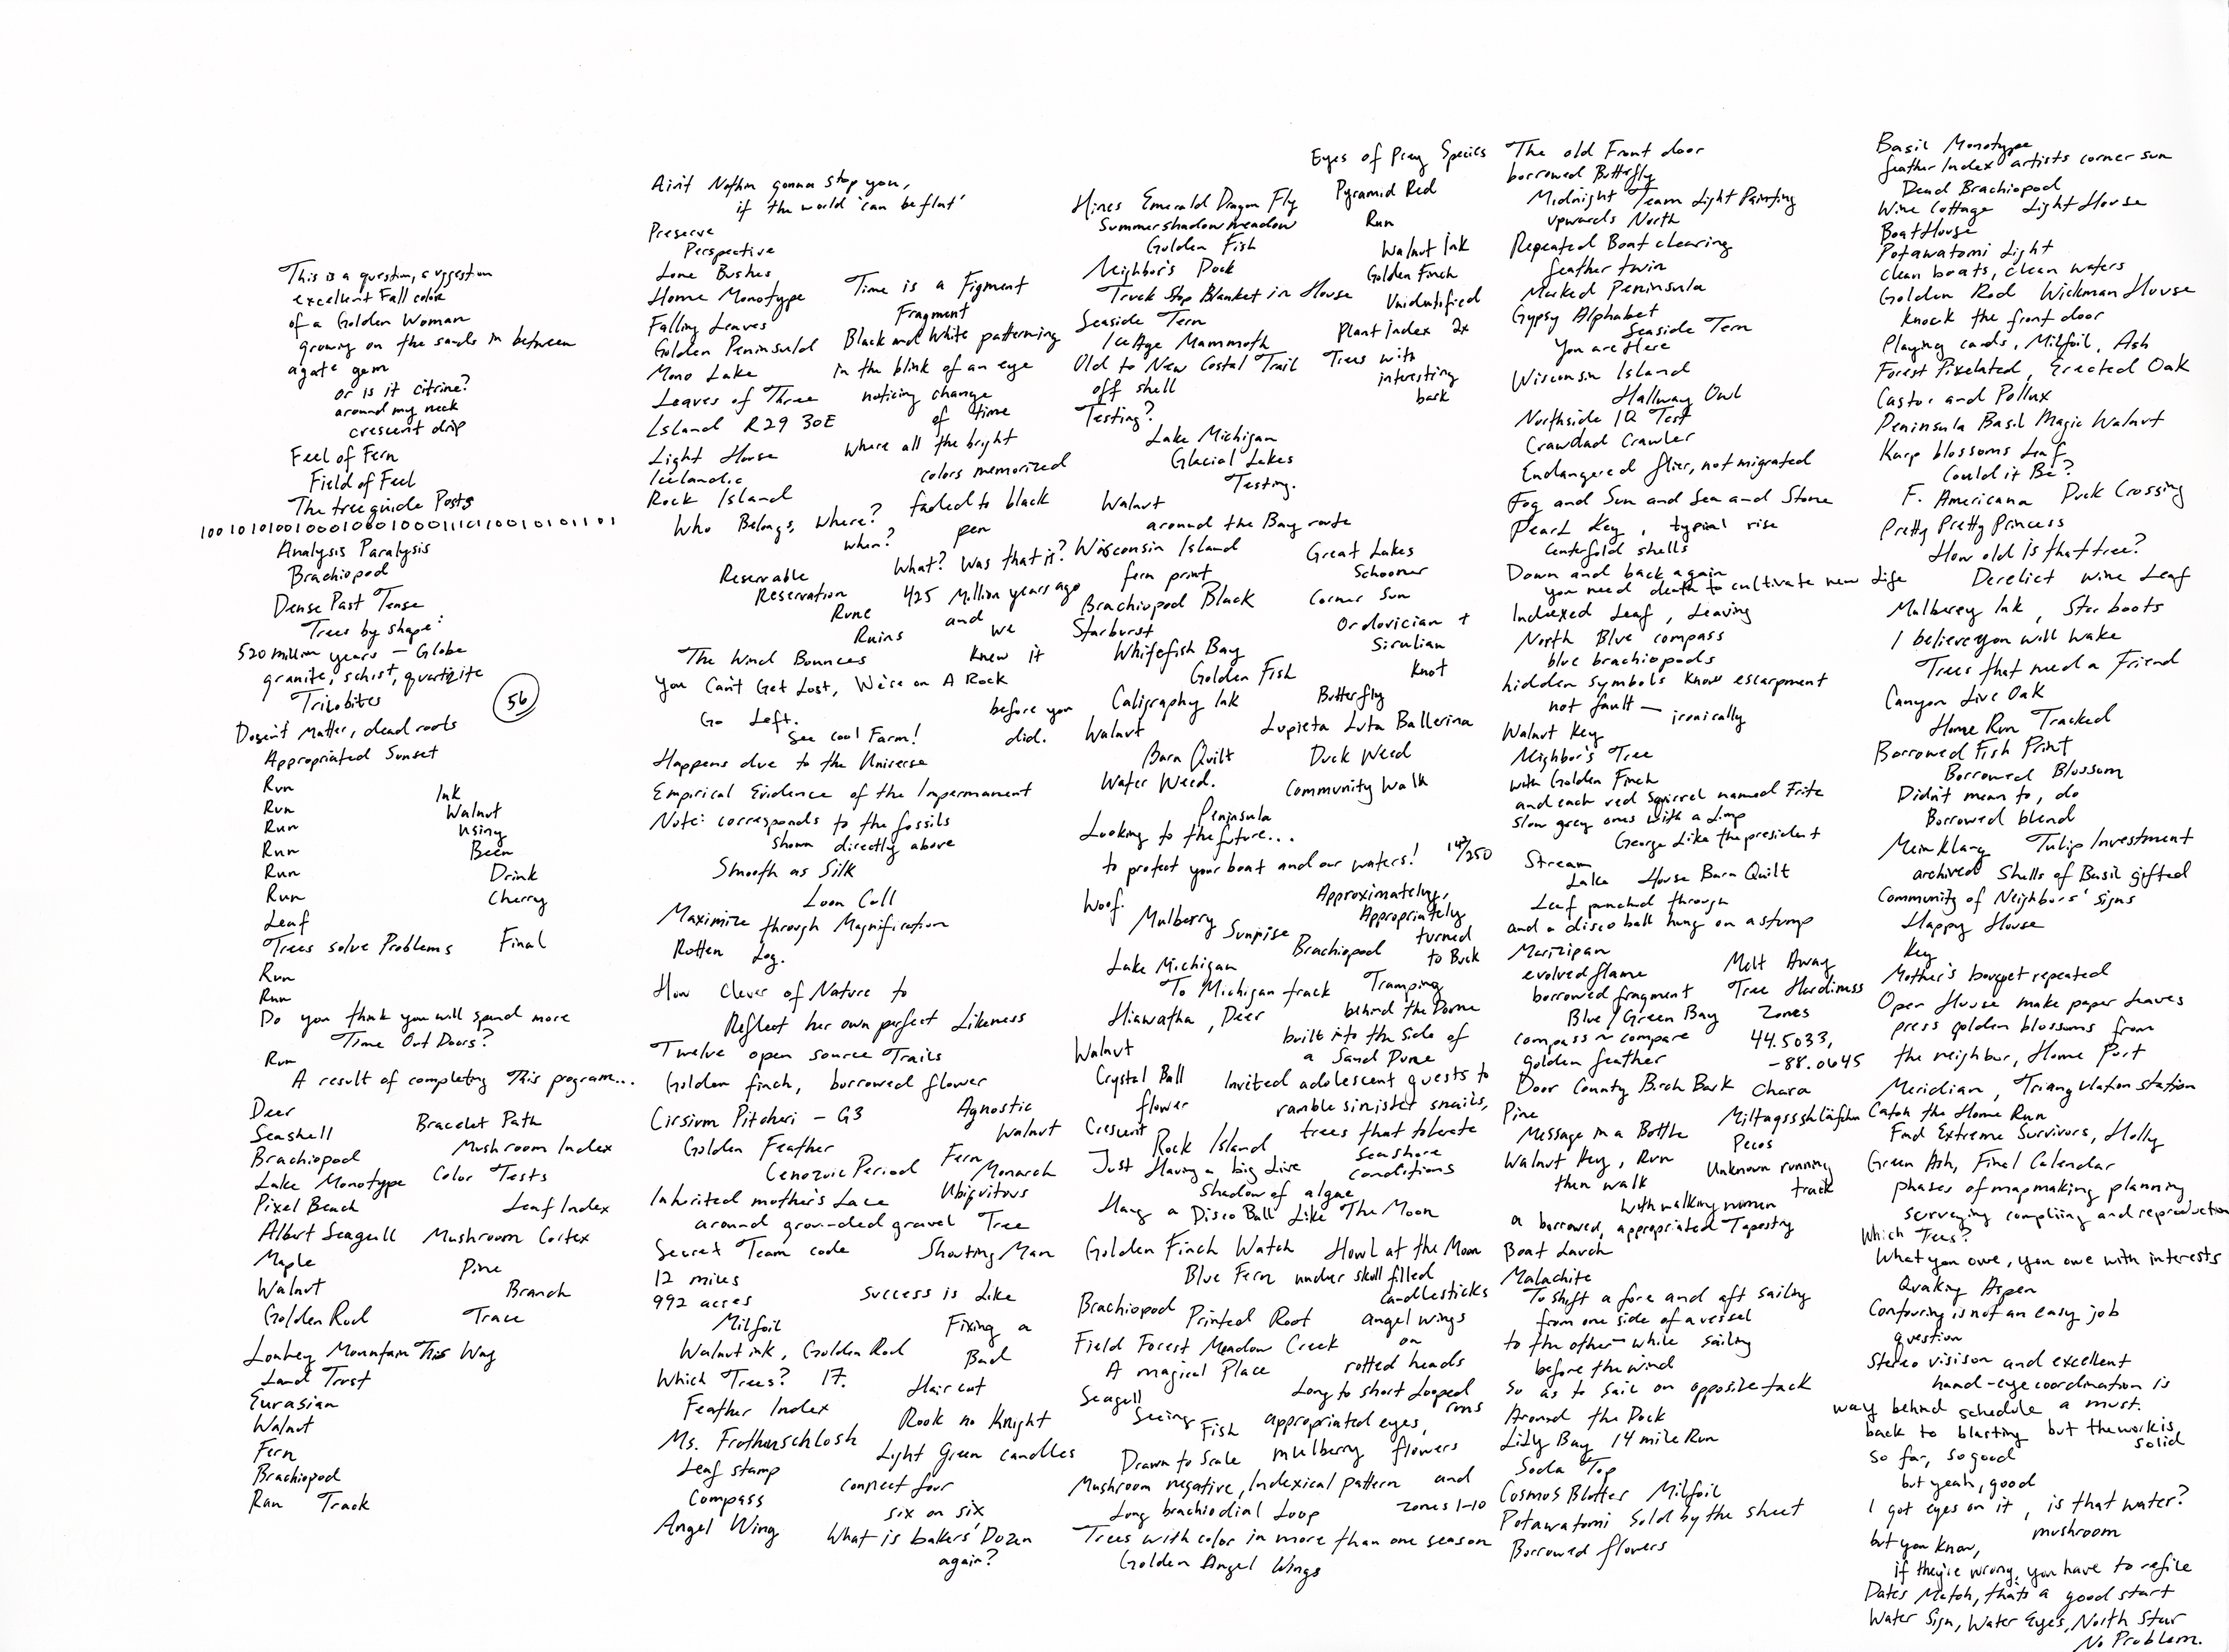 This is a question, suggestion
excellent Fall color
of a Golden Woman
growing on the sands in between
agate gem
or is it citrine?
around my neck
crescent drip
Feel of Fern
Field of Feel
The tree guide Posts
Analysis Paralysis
Brachiopod
Dense Past Tense
Trees by shape:
520 million years — Globe
granite, schist, quartzite
Trilobites
56
Doesn't Matter, dead roots
Appropriated Sunset
Run
Run
Run
Run
Run
Run
Ink
Walnut
using
Been
Drink
Cherry
Leaf
Trees solve Problems Final
Run
Run
Do you think you will spend more
Time Out Doors?
Run
A result of completing This program...
Deer
Bracelet Path
Seashell
Mushroom Index
Brachiopod
Lake Monotype Color Tests
Pixel Beach Leaf Index
Albert Seagull Mushroom Cortex
Maple Pine
Walnut Branch
Golden Rod Trace
Mountain This Way
Land Trust
Eurasian
Walnut
Fern
Brachiopod
Ran Track
Ain't Nothin gonna stop you,
if the world 'can be flat'
Preserve
Perspective
Lone Bushes
Home Monotype
Falling Leaves
Golden Peninsula
Mono Lake
Leaves of Three
Island R29 30E
Light House
Icelandic
Rock Island
Time is a Figment
Fragment
Black and White patterning
in the blink of an eye
noticing change
of time
where all the bright
colors memorized
faded to black
pen
Who Belongs, where?
when?
What? Was that it?
Reservable
Reservation
Rune
Ruins
425 Million years ago
and
we
knew it
before you
did.
The Wind Bounces
You Can't Get Lost, We're on A Rock
Go Left.
See cool Farm!
Happens due to the Universe
Empirical Evidence of the Impermanent
Note: corresponds to the fossils
shown directly above
Smooth as Silk
Loon Call
Maximize through Magnification
Rotten Log.
How Clever of Nature to
Reflect her own perfect Likeness
Twelve open source Trails
Golden finch, borrowed flower
Cirsium Pitcheri — G3
Agnostic
Walnut
Golden Feather
Cenozoic Period
Fern
Monarch
Inherited mother's Lace
Ubiquitous
around grounded gravel Tree
Secret Team code
Shouting Man
12 miles
992 acres
Success is Like
Milfoil
Fixing a
Walnut ink, Golden Rod
Bad
Which Trees? 17.
Haircut
Feather Index
Rook no Knight
Ms. Frothenschlosh
Light Green candles
Leaf stamp
connect four
Compass
six on six
Angel Wing
What is bakers' Dozen
again?
Hines Emerald Dragon Fly
Summershadowmeadow
Golden Fish
Neighbor's Dock
Truck Stop Blanket in House
Seaside Tern
Ice Age Mammoth
Old to New Costal Trail
off shell
Testing?
Lake Michigan
Glacial Lakes
Testing.
Walnut
around the Bay route
Wisconsin Island
fern print
Brachiopod Black
Starburst
Whitefish Bay
Golden Fish
Caligraphy Ink
Walnut
Barn Quilt
Water Weed.
Eyes of Prey Species
Pyramid Red
Run
Walnut Ink
Golden Finch
Unidentified
Plant Index 2x
Trees with
interesting
bark
Great Lakes
Schooner
Corner Sun
Ordovician +
Sirulian
Knot
Butterfly
Lupieta Luta Ballerina
Duck Weed
Community Walk
Peninsula
Looking to the future...
to protect your boat and our waters!
147/250
Woof.
Mulberry
Sunrise
Brachiopod
Approximately,
Appropriately
turned
to Buck
Lake Michigan
To Michigan track
Tramping
Hiawatha, Deer
behind the Dome
Walnut
built into the side of
a Sand Dune
Crystal Ball
Invited adolescent guests to
flower
ramble sinister snails,
Crescent
Rock Island
trees that tolerate
seashore
conditions
Just Having a big Live
Shadow of algae
Hang a Disco Ball Like The Moon
Golden Finch Watch Howl at the Moon
Blue Fern under skull filled
candlesticks
Brachiopod Printed Root
angel wings
Field Forest Meadow Creek
on
A magical Place
rotted heads
Seagull
Long to short Looped
runs
Seeing
Fish appropriated eyes,
Drawn to Scale mulberry flowers
Mushroom negative, Indexical pattern and
Long brachiodial Loop
zones 1-10
Trees with color in more than one season
Golden Angel Wings
The old Front door
borrowed Butterfly
Midnight Team Light Painting
upwards North
Repeated Boat clearing
feather twin
Masked Peninsula
Gypsy Alphabet
Seaside Tern
You are Here
Wisconsin Island
Hallway Owl
Northside IQ Test
Crawdad Crawler
Endangered flier, not migrated
Fog and Sun and Sea and Stone
Pearl Key, typial rise
Centerfold shells
Down and back again
you need death to cultivate new Life
Indexed Leaf, Leaving
North Blue compass
blue brachiopods
hidden symbols know escarpment
not fault — ironically
Walnut Key
Neighbor's Tree
with Golden Finch
and each red Squirrel named Fritz
slow grey ones with a Limp
George Like the president
Stream
Lake House Barn Quilt
Leaf punched through
and a disco ball hung on a stump
Marizipan
evolved flame
Melt Away
borrowed fragment
Tree Hardiness
Blue/Green Bay
Zones
compass ~ compare
44.5033,
golden feather
-88.0645
Door County Birch Bark
Chara
Pine
Message in a Bottle
Pecos
Walnut Key, Run
then walk
Unknown running
track
with walking women
a borrowed, appropriated Tapestry
Boat Launch
Malachite
To shift a fore and aft sailing
from one side of a vessel
to the other — while sailing
before the wind
so as to sail on opposite tack
Around the Dock
Lily Bay 14 mile Run
Soda Top
Cosmos Blotter Milfoil
Potawatomi Sold by the sheet
Borrowed flowers
Basil Monotype
feather Index artists corner sun
Dead Brachiopod
Wine Cottage Light House
BoatHouse
Potawatomi Light
clean boats, clean waters
Golden Rod Wickman House
Knock the front door
Playing cards, Milfoil, Ash
Forest Pixelated, Erected Oak
Castor and Pollux
Peninsula Basil Magic Walnut
Karp blossoms Leaf
Could it Be?
F. Americana Duck Crossing
Pretty Pretty Princess
How old is that tree?
Derelict wine Leaf
Mulberry Ink, Star boots
I believe you will wake
Trees that need a Friend
Canyon Live Oak
Home Run Tracked
Borrowed Fish Print
Borrowed Blossom
Didn't mean to, do
Borrowed blend
Meinklang Tulip Investment
archived Shells of Basil gifted
Community of Neighbors' signs
Happy House
Key
Mother's bouquet repeated
Open House make paper Leaves
press golden blossoms from
the neighbor, Home Port
Meridian, Triangulation station
Catch the Home Run
Find Extreme Survivors, Holly
Green Ash, Final Calendar
phases of mapmaking planning
surveying compiling and reproduction
Which Trees?
What you owe, you owe with interests
Quaking Aspen
Contouring is not an easy job
question
Stereo visison and excellent
hand-eye coordination is
way behind schedule a must.
back to blasting but the work is
solid
so far, so good
but yeah, good
I got eyes on it, is that water?
mushroom
but you know,
if they're wrong, you have to refile
Dates Match, thats a good start
Water Sign, Water Eyes, North Star
No Problem.